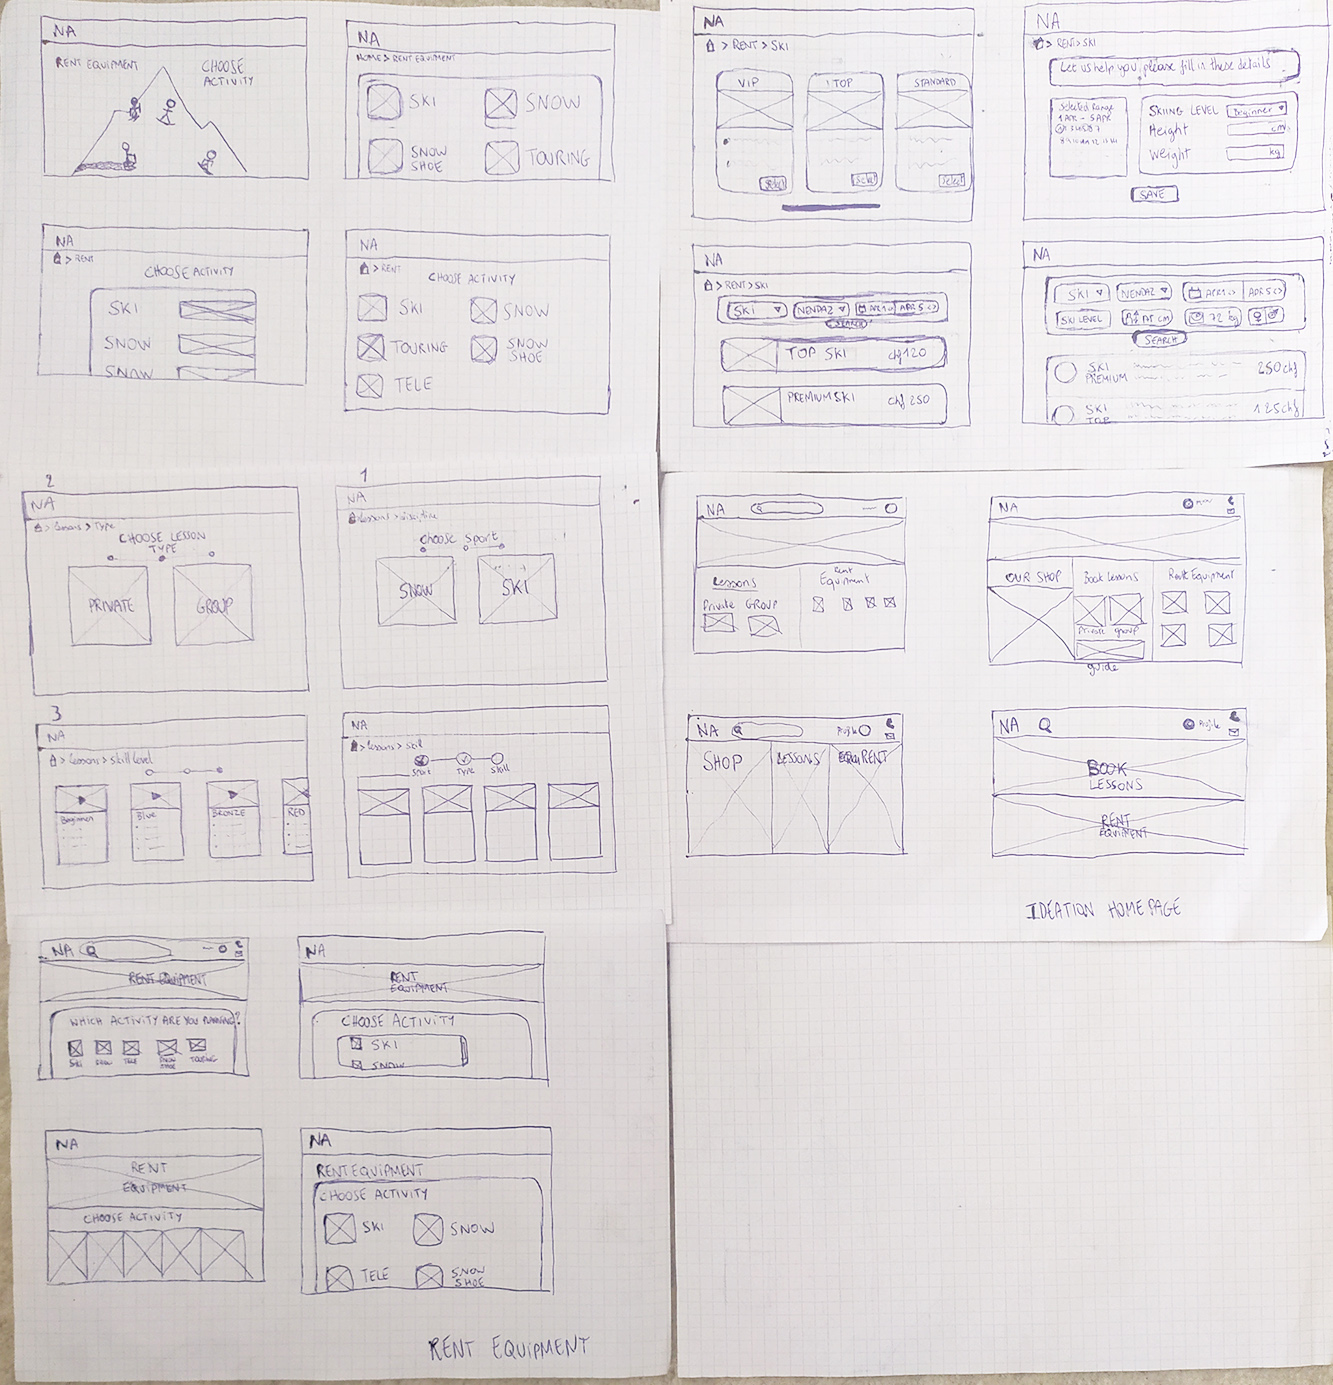 NA
RENT EQUIPMENT
CHOOSE
ACTIVITY
NA
HOME > RENT EQUIPMENT
SKI
SNOW
SNOW
SHOE
TOURING
NA
> RENT
CHOOSE ACTIVITY
SKI
SNOW
SNOW
NA
> RENT
CHOOSE ACTIVITY
SKI
SNOW
TOURING
SNOW
SHOE
TELE
NA
> RENT > SKI
VIP
TOP
STANDARD
Select
Select
Select
NA
> RENT > SKI
Let us help you, please fill in these details
Selected Range
1 APR - 5 APR
SKIING LEVEL
Beginner
Height
cm
Weight
kg
SAVE
NA
> RENT > SKI
SKI
NENDAZ
APR 5
SEARCH
TOP SKI
chf 120
PREMIUM SKI
chf 250
NA
SKI
NENDAZ
APR 1
APR 5
SKI LEVEL
cm
72 kg
SEARCH
SKI
PREMIUM
250 chf
SKI
TOP
125 chf
2
NA
> Lessons > Type
CHOOSE LESSON
TYPE
PRIVATE
GROUP
1
NA
> Lessons > Discipline
Choose Sport
SNOW
SKI
3
NA
> Lessons > Skill Level
Beginner
Blue
BRONZE
RED
NA
> Lessons > Skill
Sport
Type
Skill
NA
Lessons
Private
GROUP
Rent
Equipment
NA
OUR SHOP
Book Lessons
Private
group
guide
Rent Equipment
NA
Profile
SHOP
LESSONS
RENT
NA
Profile
BOOK
LESSONS
RENT
EQUIPMENT
IDEATION HOMEPAGE
NA
RENT EQUIPMENT
WHICH ACTIVITY ARE YOU PLANNING?
SKI
SNOW
TELE
SNOW
SHOE
TOURING
NA
RENT
EQUIPMENT
CHOOSE ACTIVITY
SKI
SNOW
NA
RENT
EQUIPMENT
CHOOSE ACTIVITY
NA
RENT EQUIPMENT
CHOOSE ACTIVITY
SKI
SNOW
TELE
SNOW
SHOE
RENT EQUIPMENT